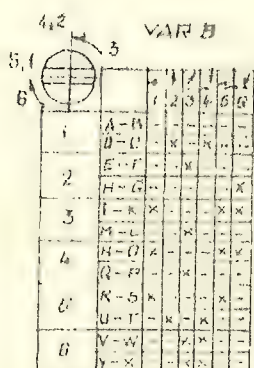 4,2
3
VAR B
5,1
6
1 2 3 4 5 6
1 A-B - - - - - -
D-C - x - x - -
2 E-F - - x - - -
H-G - - - - - x
3 I-K x - - - x x
M-L - - x - - -
4 N-O x - - - x x
Q-P - - x - - -
5 R-S x - - - x -
U-T - x - x - -
6 V-W - - x x - -
Y-X - - x x - -